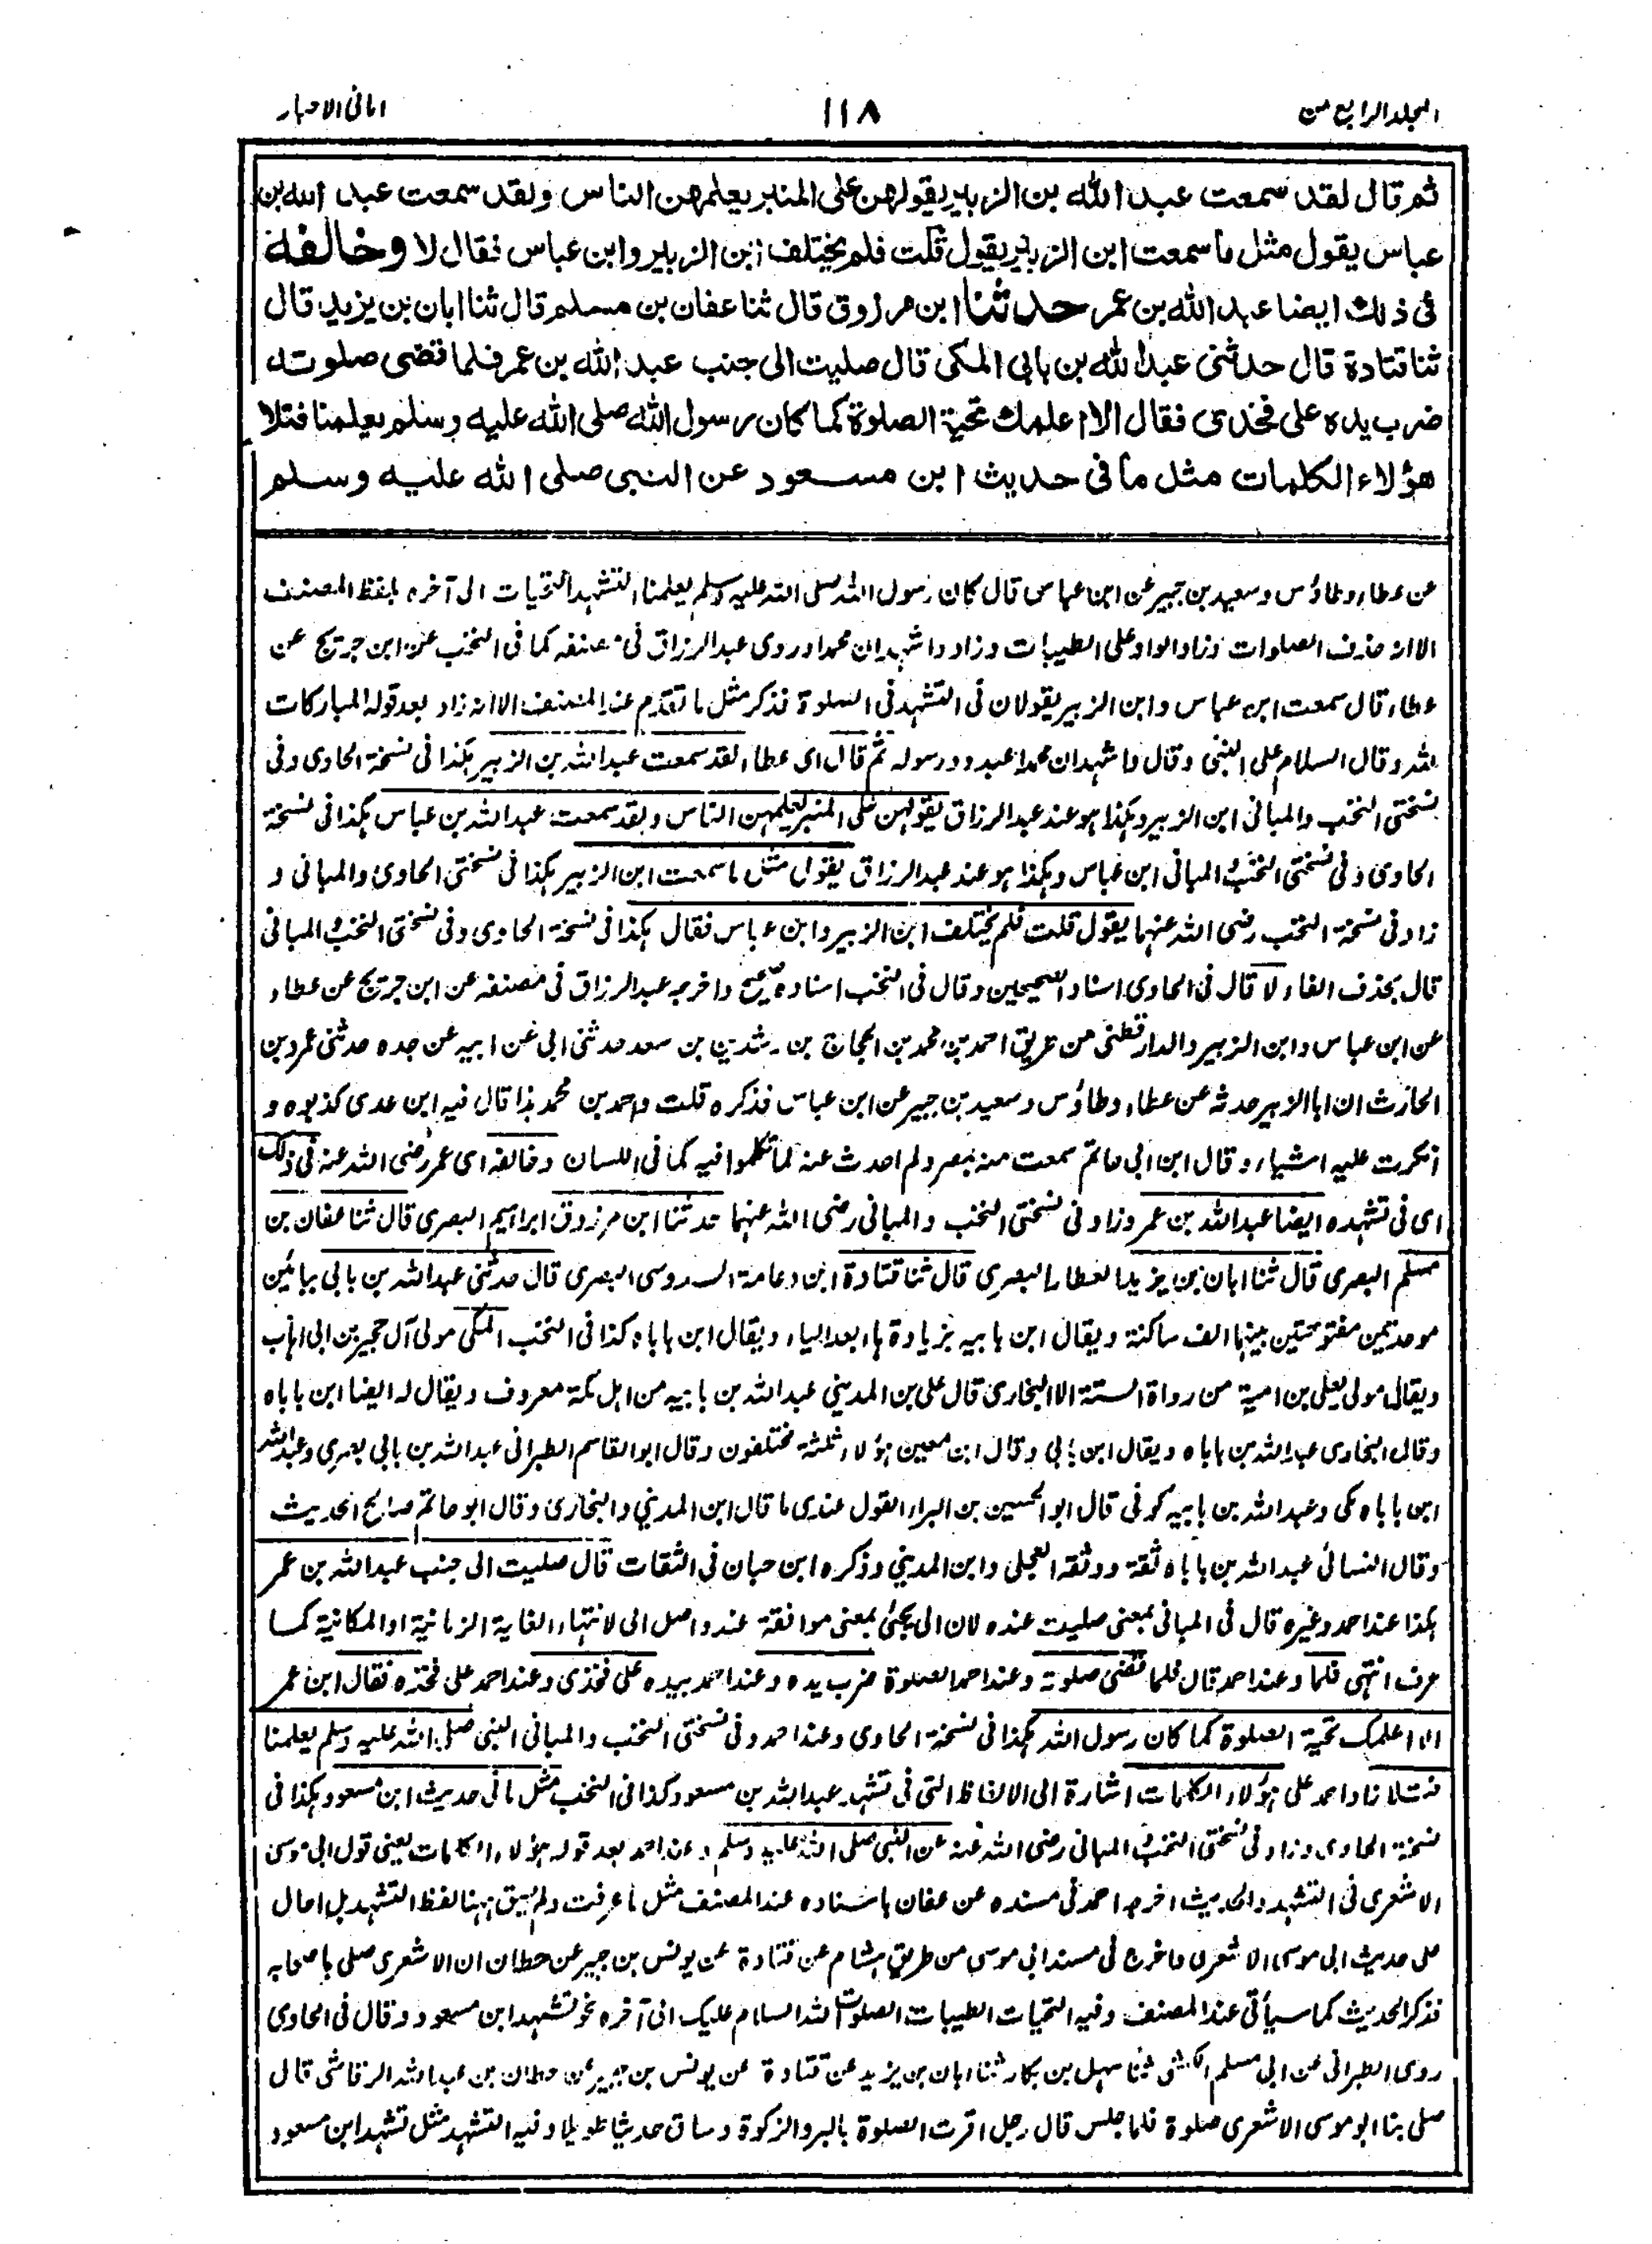 المجلد الرابع من
١١٨
امانی الاحبار
ثم قال لقد سمعت عبد الله بن الزبير يقولهن على المنبر يعلمهن الناس ولقد سمعت عبد الله بن
عباس يقول مثل ما سمعت ابن الزبير يقول قلت فلم يختلف ابن الزبير وابن عباس فقال لا وخالفه
فى ذلك ايضا عبد الله بن عمر حدثنا ابن مرزوق قال ثنا عفان بن مسلم قال ثنا ابان بن يزيد قال
ثنا قتادة قال حدثنى عبد الله بن بابى المكى قال صليت الى جنب عبد الله بن عمر فلما قضى صلوته
ضرب يده على فخذى فقال الا اعلمك تحية الصلوة كما كان رسول الله صلى الله عليه وسلم يعلمنا فتلا
هؤلاء الكلمات مثل ما فى حديث ابن مسعود عن النبى صلى الله عليه وسلم
عن عطاء وطاؤس وسعيد بن جبير عن ابن عباس قال كان رسول الله صلى الله عليه وسلم يعلمنا التشهد التحيات الى آخره بلفظ المصنف
الا انه حذف الصلوات وزاد الواو على الطيبات وزاد واشهد ان محمدا وروى عبد الرزاق فى مصنفه كما فى النخب عن ابن جريج عن
عطاء قال سمعت ابن عباس وابن الزبير يقولان فى التشهد فى الصلوة فذكر مثل ما تقدم عند المصنف الا انه زاد بعد قوله المباركات
لله وقال السلام على النبى وقال واشهد ان محمدا عبده ورسوله ثم قال اى عطاء لقد سمعت عبد الله بن الزبير هكذا فى نسخة الحاوى وفى
نسختى النخب والمبانى ابن الزبير وهكذا هو عند عبد الرزاق يقولهن على المنبر يعلمهن الناس ولقد سمعت عبد الله بن عباس هكذا فى نسخة
الحاوى وفى نسختى النخب والمبانى ابن عباس وهكذا هو عند عبد الرزاق يقول مثل ما سمعت ابن الزبير هكذا فى نسختى الحاوى والمبانى و
زاد فى نسخة النخب رضى الله عنهما يقول قلت فلم يختلف ابن الزبير وابن عباس فقال هكذا فى نسخة الحاوى وفى نسختى النخب والمبانى
قال بحذف الفاء لا قال فى الحاوى اسناد الصحيحين وقال فى النخب اسناده صحيح واخرجه عبد الرزاق فى مصنفه عن ابن جريج عن عطاء
عن ابن عباس وابن الزبير والدارقطنى من طريق احمد بن محمد بن الحجاج بن رشدين بن سعد حدثنى ابى عن ابيه عن جده حدثنى عمرو بن
الحارث ان ابا الزبير حدثه عن عطاء وطاؤس وسعيد بن جبير عن ابن عباس فذكره قلت واحمد بن محمد هذا قال فيه ابن عدى كذبوه و
انكرت عليه اشياء وقال ابن ابى حاتم سمعت منه بمصر ولم احدث عنه لما تكلموا فيه كما فى اللسان وخالفه اى عمر رضى الله عنه فى ذلك
اى فى تشهده ايضا عبد الله بن عمر وزاد فى نسختى النخب والمبانى رضى الله عنهما حدثنا ابن مرزوق ابراهيم البصرى قال ثنا عفان بن
مسلم البصرى قال ثنا ابان بن يزيد العطار البصرى قال ثنا قتادة ابن دعامة السدوسى البصرى قال حدثنى عبد الله بن بابى ببائين
موحدتين مفتوحتين بينهما الف ساكنة ويقال ابن بابيه بزيادة هاء بعد الياء ويقال ابن باباه كذا فى النخب المكى مولى آل حجير بن ابى اهاب
ويقال مولى يعلى بن امية من رواة الستة الا البخارى قال على بن المدينى عبد الله بن بابيه من اهل مكة معروف ويقال له ايضا ابن باباه
وقال البخارى عبد الله بن باباه ويقال ابن بابى وقال ابن معين هؤلاء ثلثة مختلفون وقال ابو القاسم الطبرانى عبد الله بن بابى بصرى وعبد الله
ابن باباه مكى وعبد الله بن بابيه كوفى قال ابو الحسين بن البراء القول عندى ما قال ابن المدينى والبخارى وقال ابو حاتم صالح الحديث
وقال النسائى عبد الله بن باباه ثقة ووثقه العجلى وابن المدينى وذكره ابن حبان فى الثقات قال صليت الى جنب عبد الله بن عمر
هكذا عند احمد وغيره قال فى المبانى بمعنى صليت عنده لان الى يجئ بمعنى موافقة عند واصل الى لانتهاء الغاية الزمانية او المكانية كما
عرف انتهى فلما وعند احمد قال فلما قضى صلوته وعند احمد الصلوة ضرب يده وعند احمد بيده على فخذى وعند احمد على فخذه فقال ابن عمر
الا اعلمك تحية الصلوة كما كان رسول الله هكذا فى نسخة الحاوى وعند احمد وفى نسختى النخب والمبانى النبى صلى الله عليه وسلم يعلمنا
فتلا زاد احمد على هؤلاء الكلمات اشارة الى الالفاظ التى فى تشهد عبد الله بن مسعود كذا فى النخب مثل ما فى حديث ابن مسعود هكذا فى
نسخة الحاوى وزاد فى نسختى النخب والمبانى رضى الله عنه عن النبى صلى الله عليه وسلم وعند احمد بعد قوله هؤلاء الكلمات يعنى قول ابى موسى
الاشعرى فى التشهد والحديث اخرجه احمد فى مسنده عن عفان باسناده عند المصنف مثل ما عرفت ولم يسق ههنا لفظ التشهد بل احال
على حديث ابى موسى الاشعرى واخرج فى مسند ابى موسى من طريق هشام عن قتادة عن يونس بن جبير عن حطان ان الاشعرى صلى باصحابه
فذكر الحديث كما سيأتى عند المصنف وفيه التحيات الطيبات الصلوات لله السلام عليك الى آخره نحو تشهد ابن مسعود وقال فى الحاوى
روى الطبرانى عن ابى مسلم الكشى ثنا سهل بن بكار ثنا ابان بن يزيد عن قتادة عن يونس بن جبير عن حطان بن عبد الله الرقاشى قال
صلى بنا ابو موسى الاشعرى صلوة فلما جلس قال رجل اقرت الصلوة بالبر والزكوة وساق حديثا طويلا وفيه التشهد مثل تشهد ابن مسعود